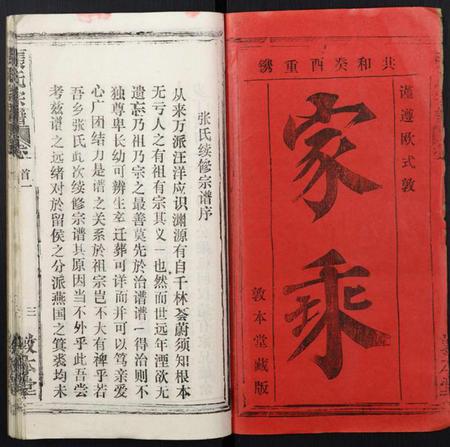 共和癸酉重镌
谨遵欧式敦
家乘
敦本堂藏版
张氏续修宗谱序
从来万派汪洋应识渊源有自千林荟蔚须知根本
无亏人之有祖有宗其义一也然而世远年湮欲无
遗忘乃祖乃宗之最善莫先於治谱谱一得治则不
独尊卑长幼可辨生卒迁葬可详而并可以笃亲爱
心广团结力是谱之关系於祖宗岂不大有裨乎若
吾乡张氏此次续修宗谱其原因当不外乎此吾尝
考兹谱之远绪对於留侯之分派燕国之箕裘均未
張氏宗譜
首一
三
敦本堂